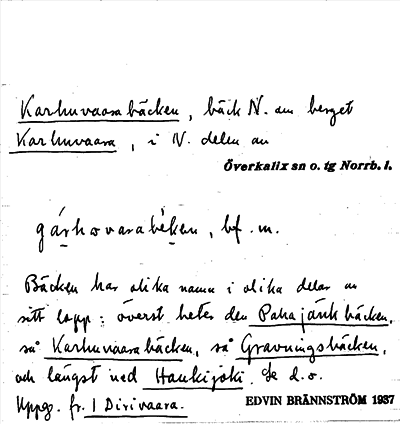 Karhuvaarabäcken, bäck N. om berget
Karhuvaara, i N. delen av
Överkalix sn o. tg Norrb. l.
gárhovarabèken, bf. m.
Bäcken har olika namn i olika delar av
sitt lopp: överst heter den Pahajänkbäcken,
så Karhuvaarabäcken, så Gravningsbäcken,
och längst ned Haukijoki. Se d. o.
Uppg. fr. 1 Dirivaara.
EDVIN BRÄNNSTRÖM 1937